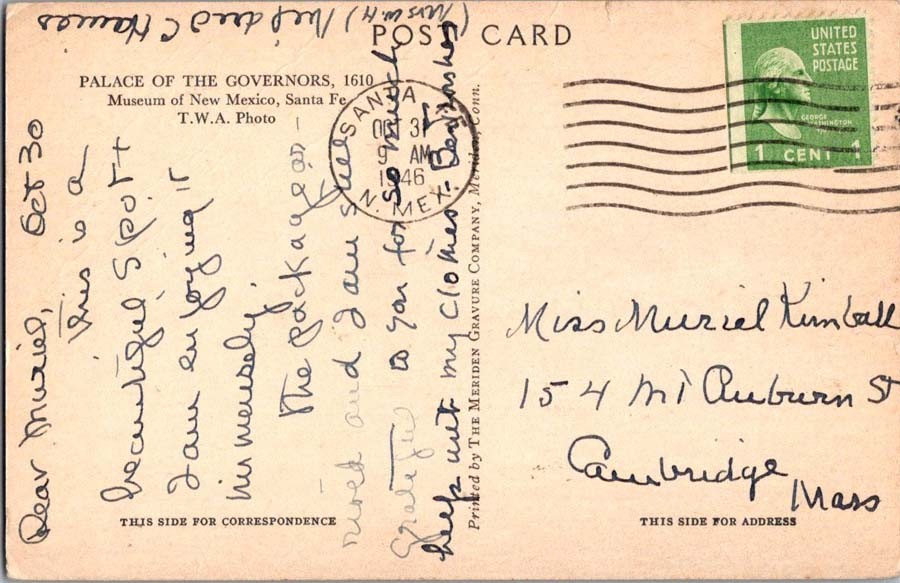 POST CARD
PALACE OF THE GOVERNORS, 1610
Museum of New Mexico, Santa Fe
T.W.A. Photo
SANTA
OCT 31
9 AM
1946
N. MEX.
UNITED
STATES
POSTAGE
GEORGE
WASHINGTON
1 CENT 1
Dear Muriel, Oct 30
This is a
beautiful spot +
I am enjoying it
immensely.
The package ar-
rived and I am
grateful to you for so much
help with my clothes
(Mrs W. H.) Mildred C Hawes
Printed by THE MERIDEN GRAVURE COMPANY, Meriden, Conn.
Miss Muriel Kimball
154 Mt Auburn St
Cambridge
Mass
THIS SIDE FOR CORRESPONDENCE
THIS SIDE FOR ADDRESS